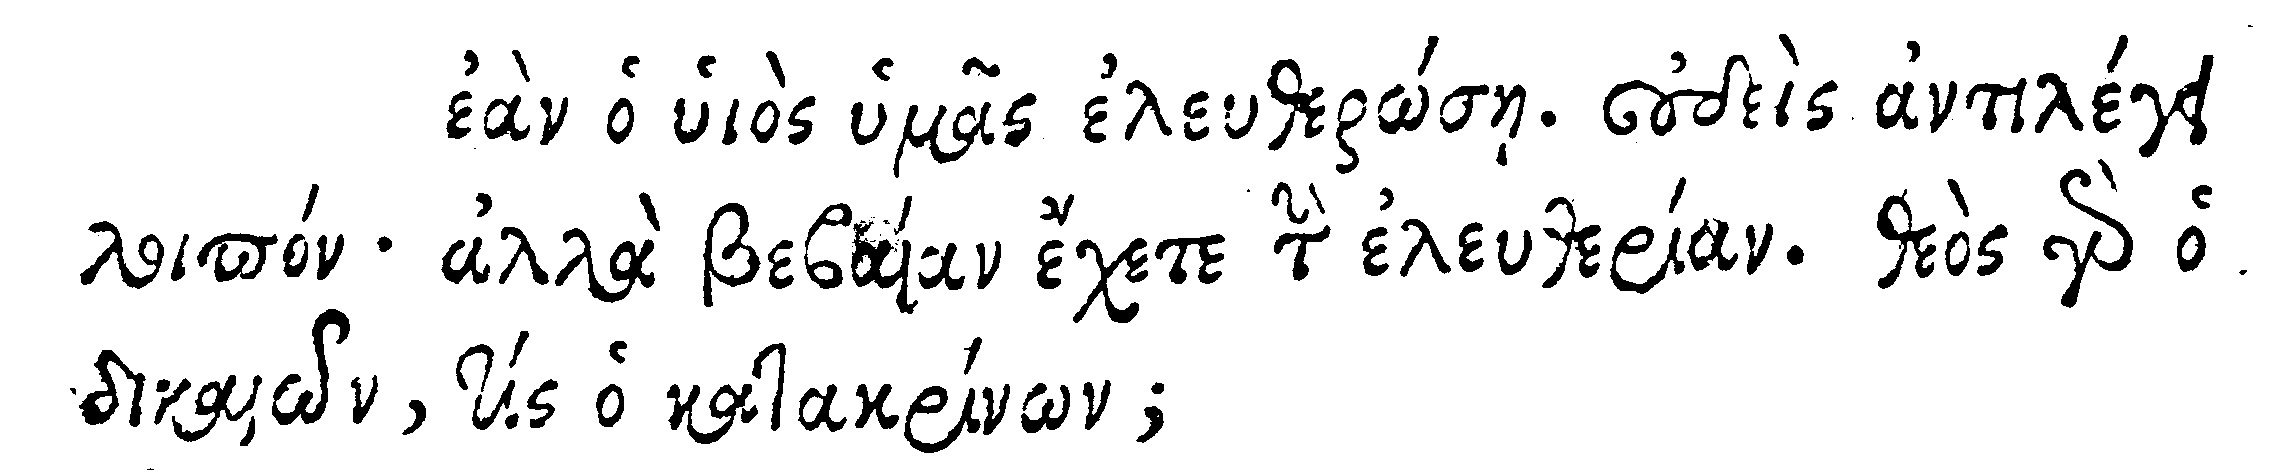 ἐὰν ὁ ὑιὸς ὑμᾶς ἐλευθερώσῃ. οὐδεὶς ἀντιλέγει
λοιπόν· ἀλλὰ βεβαίαν ἔχετε τὴν ἐλευθερίαν. θεὸς γὰρ ὁ
δικαιῶν, τίς ὁ κατακρίνων;